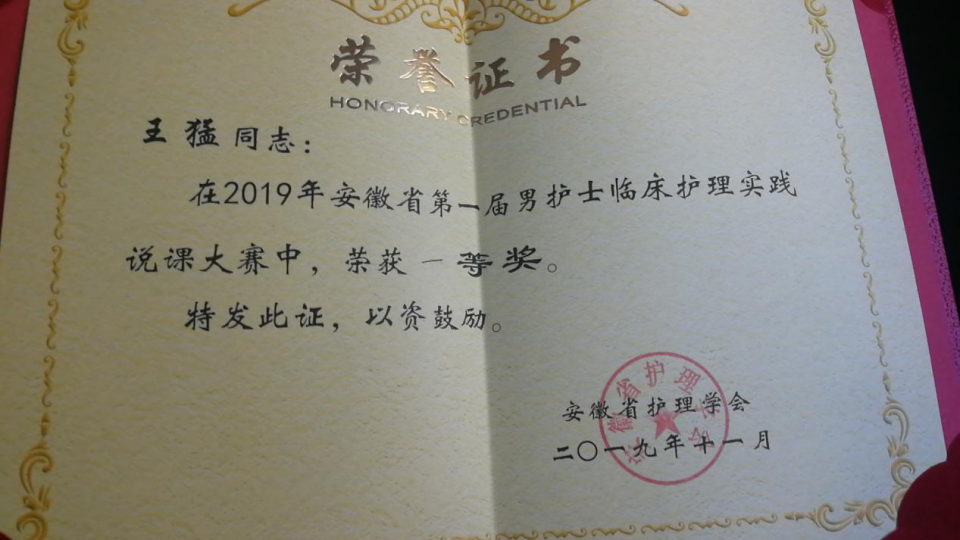 荣誉证书
HONORARY CREDENTIAL
王猛同志：
在2019年安徽省第一届男护士临床护理实践
说课大赛中，荣获一等奖。
特发此证，以资鼓励。
安徽省护理学会
二〇一九年十一月
安徽省护理学会